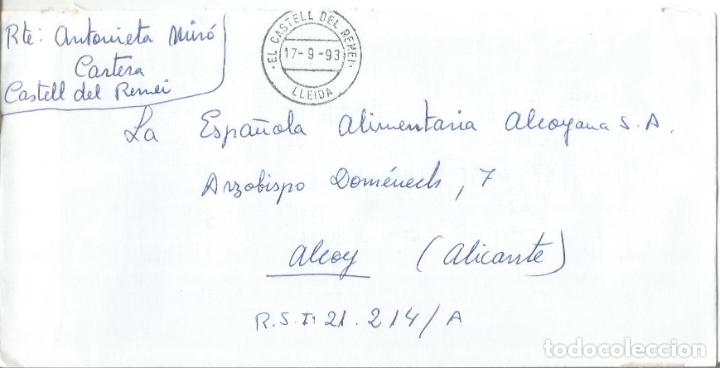 Rte: Antonieta Miró
Cartera
Castell del Remei
·EL CASTELL DEL REMEI·
17-9-93
LLEIDA
La Española Alimentaria Alcoyana S.A.
Arzobispo Doménech, 7
Alcoy (Alicante)
R.S.I. 21.214/A
todocoleccion